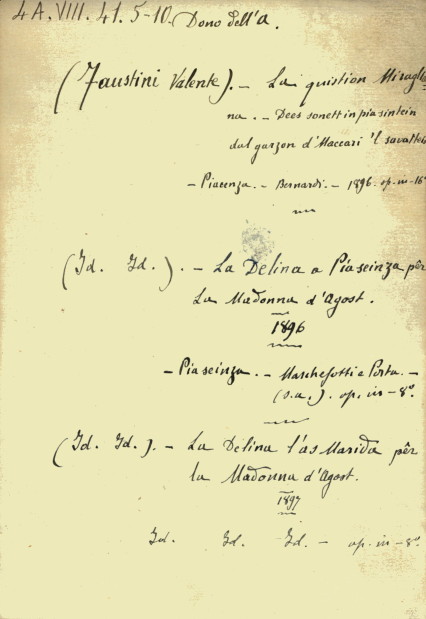 4A.VIII.41.5-10. Dono dell'a.
(Faustini Valente). - La quistion Miragli
na. - Dees sonett in piasintein
dal garzon d'Maccari 'l savattein
- Piacenza. - Bernardi. - 1896. op. in-16°
(Id. Id.). - La Delina a Piaseinza pêr
La Madonna d'Agost.
1896
- Piaseinza. - Marchesotti e Porta. -
(s.a.). op. in-8°.
(Id. Id.). - La Delina l'as Marida pêr
la Madonna d'Agost.
1897
Id. Id. Id. - op. in-8°.